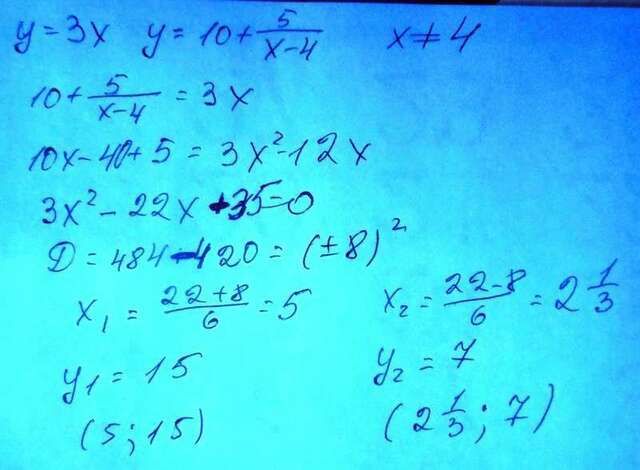 y = 3x y = 10 + 5/(x-4) x ≠ 4
10 + 5/(x-4) = 3x
10x - 40 + 5 = 3x² - 12x
3x² - 22x + 35 = 0
D = 484 - 420 = (±8)²
x₁ = (22+8)/6 = 5 x₂ = (22-8)/6 = 2 1/3
y₁ = 15 y₂ = 7
(5; 15) (2 1/3; 7)